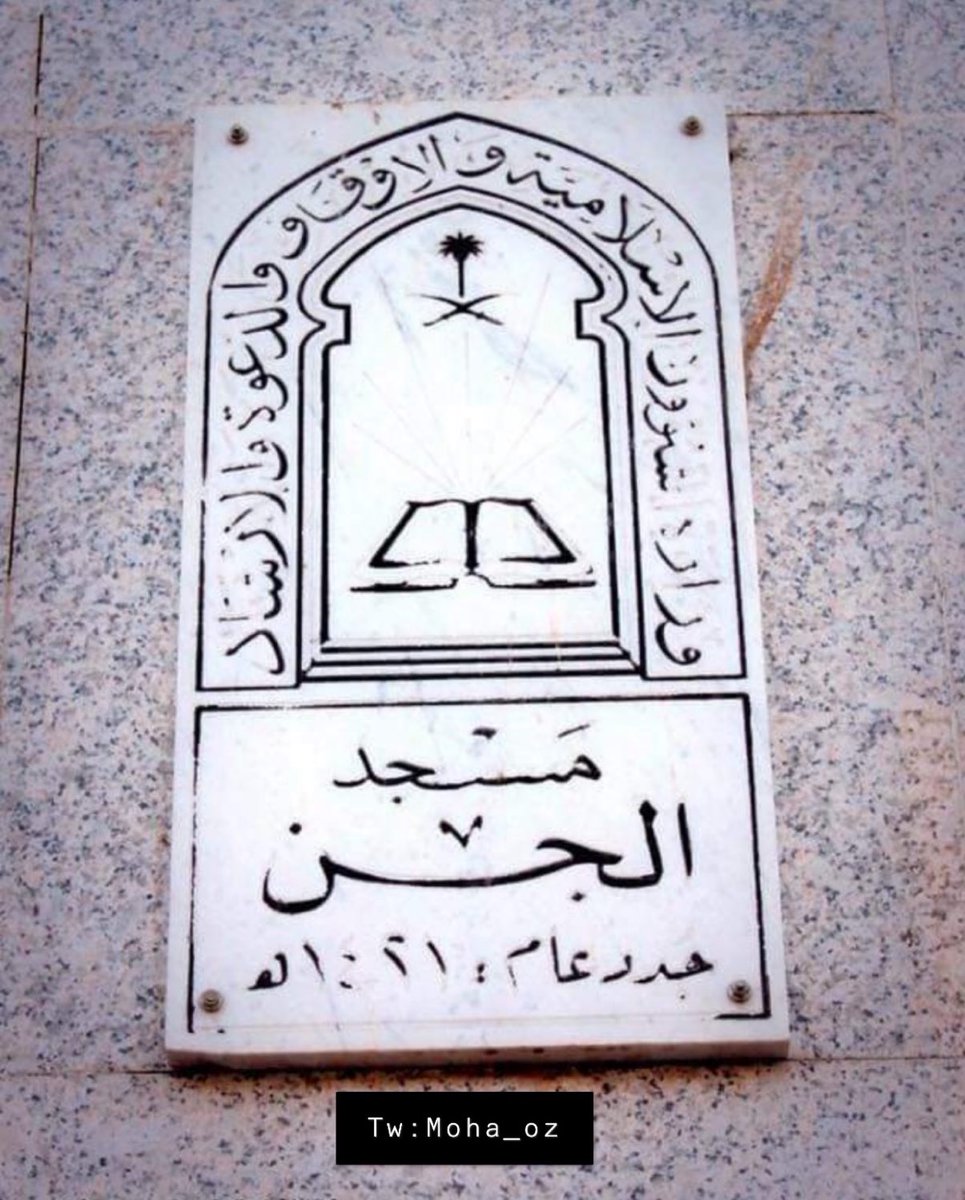 وزارة الشئون الإسلامية و الاوقاف والدعوة والإرشاد
مسجد
الجن
جدد عام : ١٤٢١ه
Tw:Moha_oz